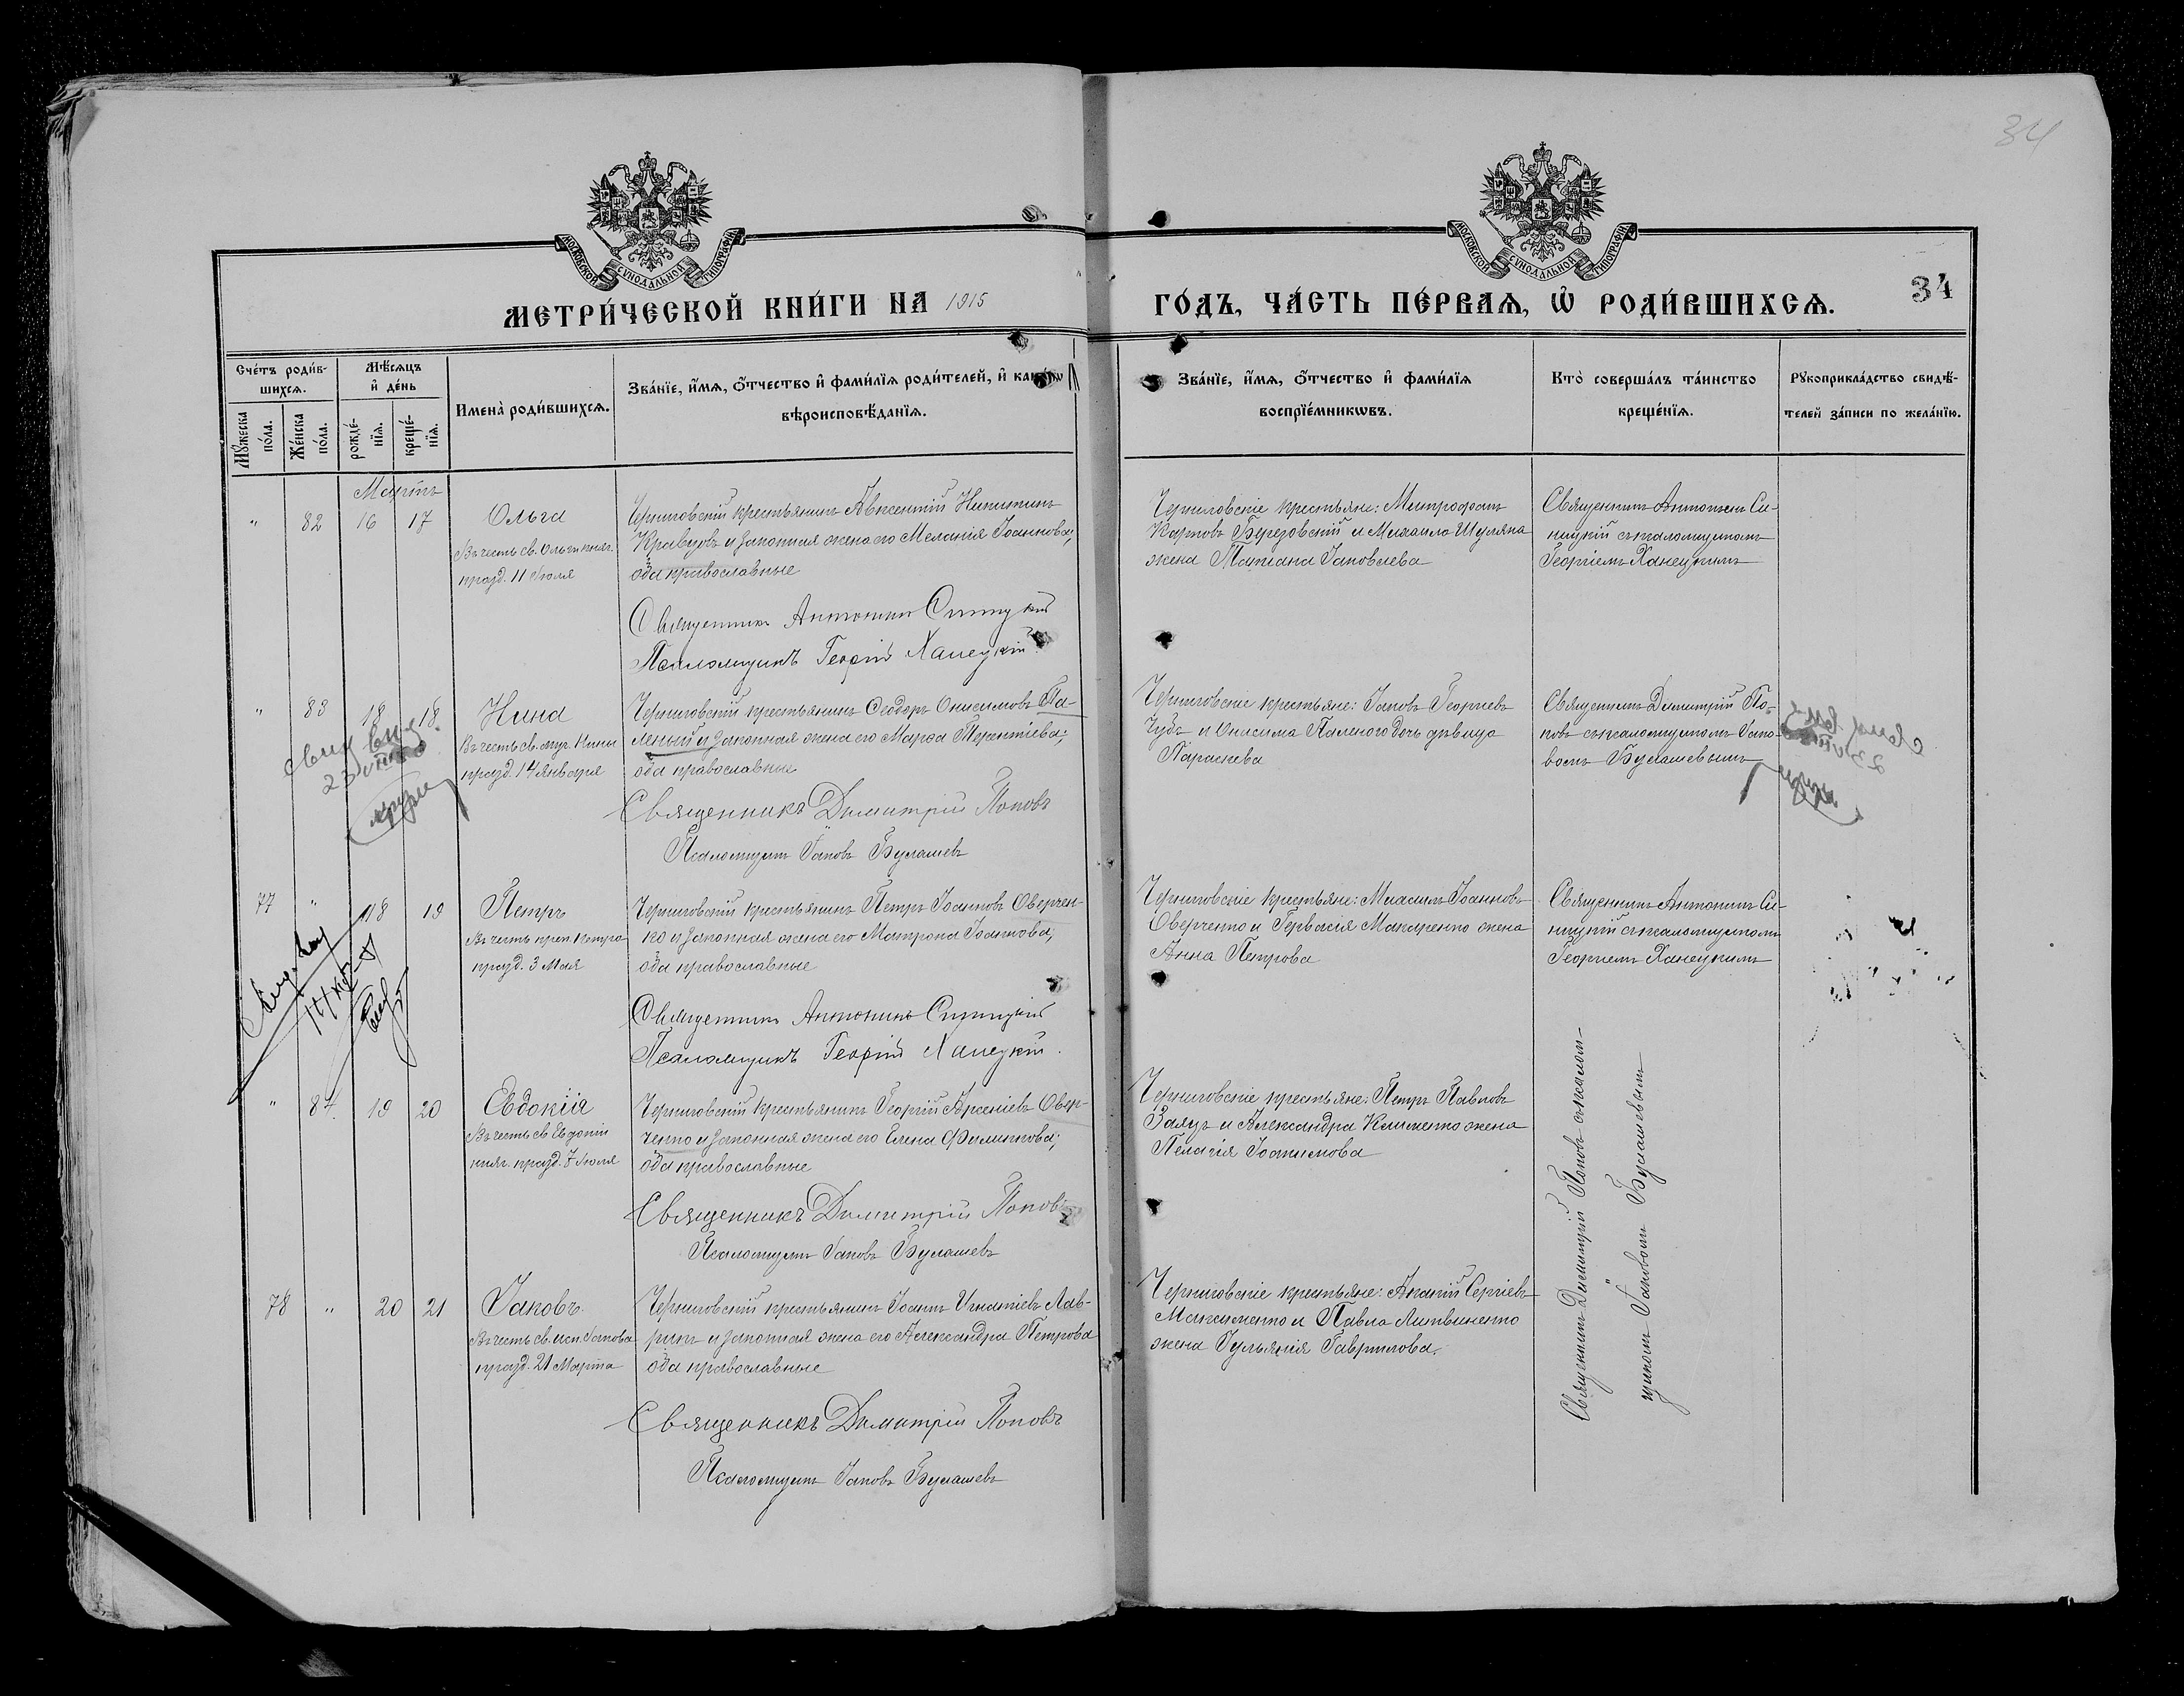 34
МОСКОВСКОЙ СѴНОДАЛЬНОЙ ТИПОГРАФІИ
МОСКОВСКОЙ СѴНОДАЛЬНОЙ ТИПОГРАФІИ
МЕТРИ́ЧЕСКОЙ КНИ́ГИ НА 1915
ГО́ДЪ, ЧА́СТЬ ПЕ́РВАѦ, Ѡ҆ РОДИ́ВШИХСѦ.
34
Сче́тъ роди́в-
шихсѧ.
Мѣ́сѧцъ
и҆ де́нь
Мꙋ́жеска
по́ла.
Же́нска
по́ла.
рожде́-
нїѧ.
креще́-
нїѧ.
Имена̀ роди́вшихсѧ.
Зва́нїе, и҆́мѧ, ѻ҆́тчество и҆ фами́лїѧ роди́телей, и҆
вѣроисповѣ́данїѧ.
Зва́нїе, и҆́мѧ, ѻ҆́тчество и҆ фами́лїѧ
воспрїе́мникѡвъ.
Кто̀ соверша́лъ та́инство
креще́нїѧ.
Рꙋкоприкла́дство свидѣ́-
телей за́писи по жела́нїю.
Мартъ
" 82 16 17
Ольга
Въ честь св. Ольги княг.
празд. 11 Іюля
Черниговскій крестьянинъ Авксентій Никитинъ
Кравцовъ и законная жена его Меланія Іоаннова;
оба православные
Священникъ Антонинъ Синицкій
Псаломщикъ Георгій Ханецкій
Черниговскіе крестьяне: Митрофанъ
Карповъ Березовскій и Михаила Шуляка
жена Татіана Іаковлева
Священникъ Антонинъ Си-
ницкій съ псаломщикомъ
Георгіемъ Ханецкимъ
" 83 18 18
Нина
Въ честь св. муч. Нины
празд. 14 Января
Черниговскій крестьянинъ Ѳеодоръ Онисимовъ Па-
леный и законная жена его Марѳа Терентіева;
оба православные
Священникъ Димитрій Поповъ
Псаломщикъ Іаковъ Булашевъ
Черниговскіе крестьяне: Іаковъ Георгіевъ
Чубъ и Онисима Паленого дочь дѣвица
Параскева
Священникъ Димитрій По-
повъ съ псаломщикомъ Іако-
вомъ Булашевымъ
77 " 18 19
Петръ
Въ честь преп. Петра
празд. 3 Мая
Черниговскій крестьянинъ Петръ Іоанновъ Оверчен-
ко и законная жена его Матрона Іоаннова;
оба православные
Священникъ Антонинъ Синицкій
Псаломщикъ Георгій Ханецкій
Черниговскіе крестьяне: Максимъ Іоанновъ
Оверченко и Гервасія Макаренко жена
Анна Петрова
Священникъ Антонинъ Си-
ницкій съ псаломщикомъ
Георгіемъ Ханецкимъ
" 84 19 20
Евдокія
Въ честь св Евдокіи
княг. празд. 7 Іюля
Черниговскій крестьянинъ Георгій Арсеніевъ Овер-
ченко и законная жена его Елена Филиппова;
оба православные
Священникъ Димитрій Поповъ
Псаломщикъ Іаковъ Булашевъ
Черниговскіе крестьяне: Петръ Павловъ
Заяцъ и Александра Клименко жена
Пелагія Іоакимова
Священникъ Димитрій Поповъ съ псалом-
щикомъ Іаковомъ Булашевымъ
78 " 20 21
Іаковъ
Въ честь св. исп. Іакова
празд. 21 Марта
Черниговскій крестьянинъ Іоаннъ Игнатіевъ Лав-
рикъ и законная жена его Александра Петрова
оба православные
Священникъ Димитрій Поповъ
Псаломщикъ Іаковъ Булашевъ
Черниговскіе крестьяне: Ананій Сергіевъ
Максименко и Павла Литвиненко
жена Іульянія Гаврилова.